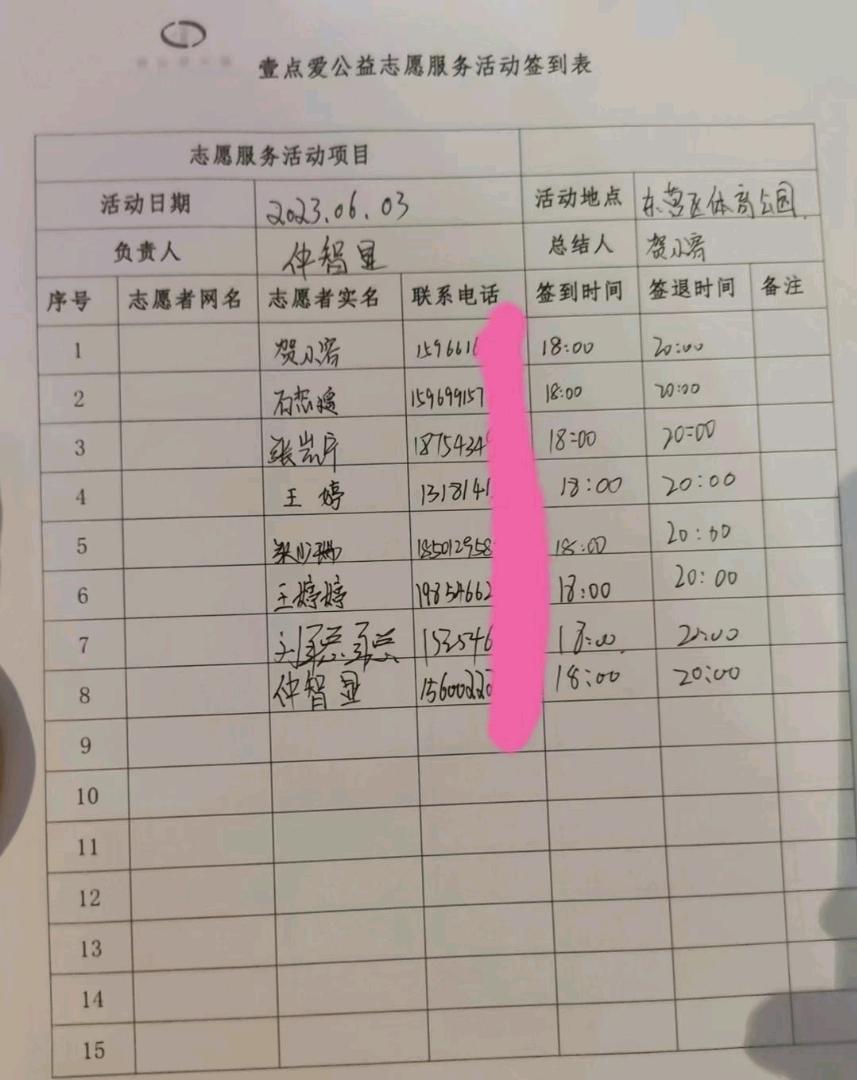 壹点爱公益志愿服务活动签到表
志愿服务活动项目
活动日期 2023.06.03 活动地点 东营区体育公园
负责人 仲智显 总结人 贺小容
序号 志愿者网名 志愿者实名 联系电话 签到时间 签退时间 备注
1 贺小容 159661 18:00 20:00
2 159699157 18:00 20:00
3 1875434 18:00 20:00
4 王婷 1318141 18:00 20:00
5 185012958 18:00 20:00
6 王婷婷 19854662 18:00 20:00
7 153546 18:00 20:00
8 仲智显 15600222 18:00 20:00
9
10
11
12
13
14
15